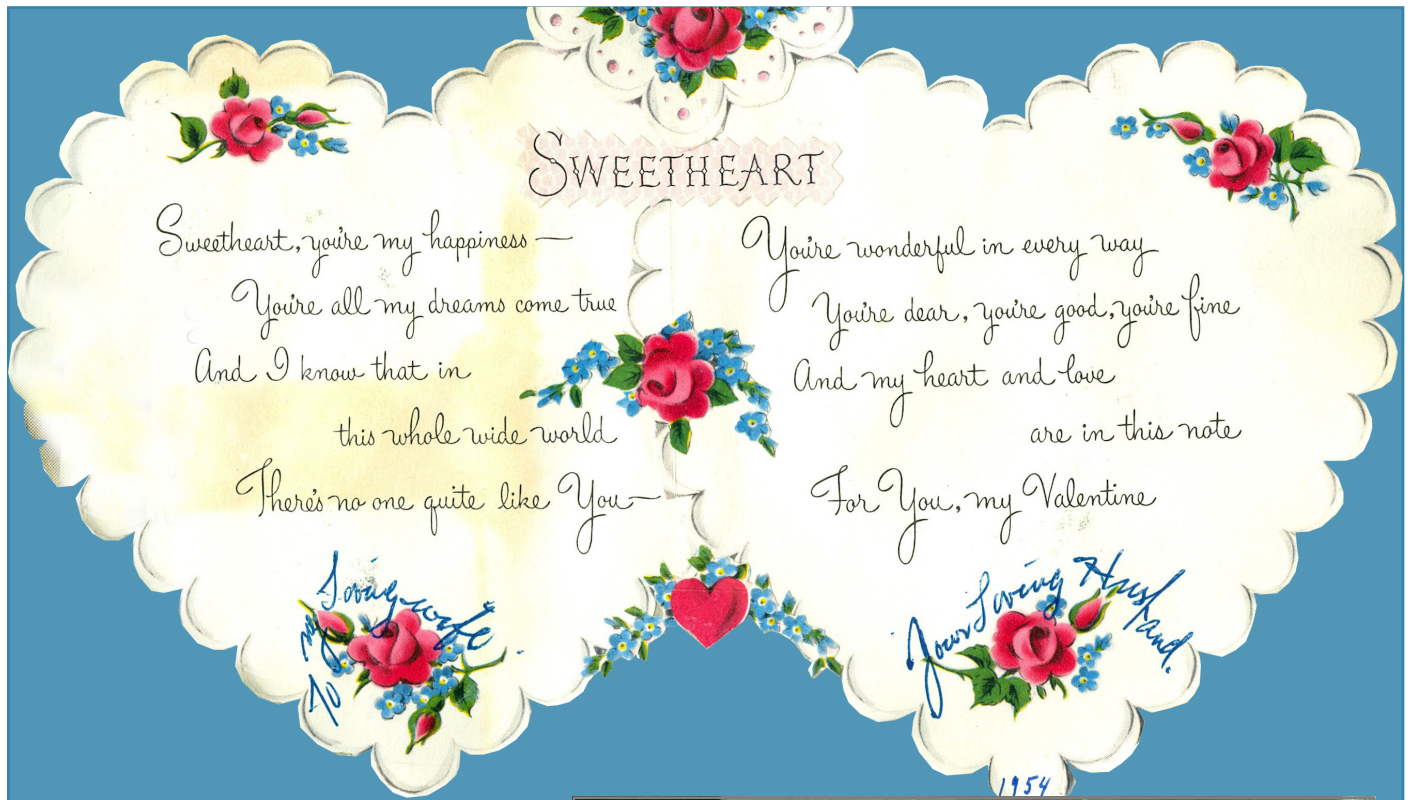 SWEETHEART
Sweetheart, you're my happiness —
You're all my dreams come true
And I know that in
this whole wide world
There's no one quite like You —
To my Loving wife.
You're wonderful in every way
You're dear, you're good, you're fine
And my heart and love
are in this note
For You, my Valentine
Your Loving Husband.
1954